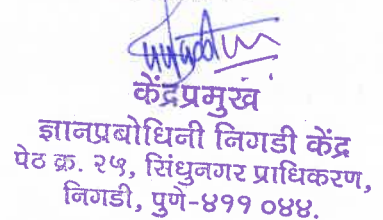 केंद्रप्रमुख
ज्ञानप्रबोधिनी निगडी केंद्र
पेठ क्र. २५, सिंधुनगर प्राधिकरण,
निगडी, पुणे-४११ ०४४.